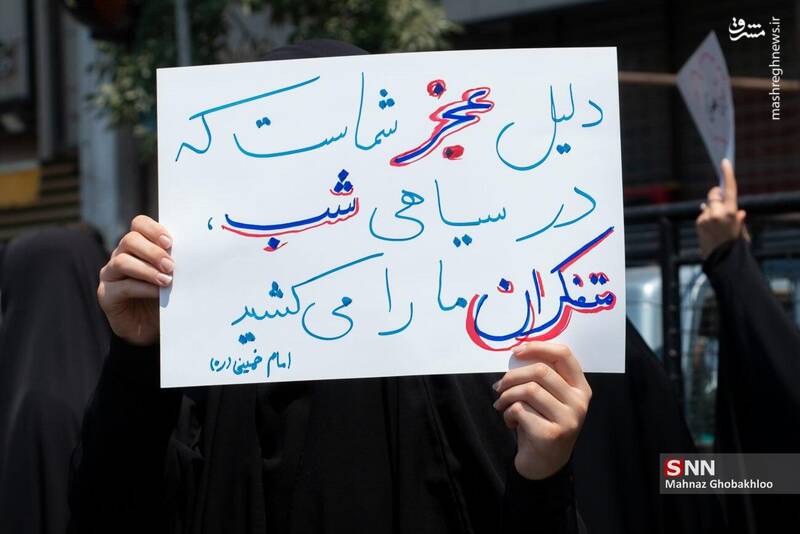 مشرق
mashreghnews.ir
دلیل عجز شماست که
در سیاهی شب،
متفکران ما را می کشید
امام خمینی (ره)
SNN
Mahnaz Ghobakhloo